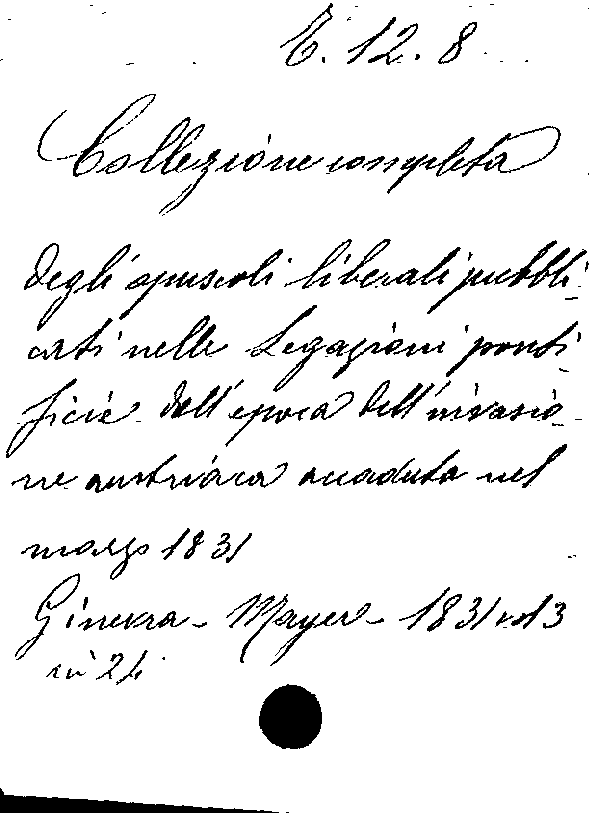 E. 12. 8
Collezione completa
degli opuscoli liberali pubbli-
cati nelle Legazioni ponti-
ficie dall'epoca dell'invasio-
ne austriaca accaduta nel
marzo 1831
Ginevra - Mayer - 1831 vol 3
in 24